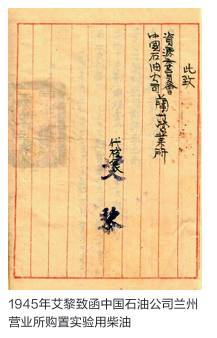 此致
資源委員會
中国石油公司
蘭州營業所
代校長
艾黎
1945年艾黎致函中国石油公司兰州
营业所购置实验用柴油